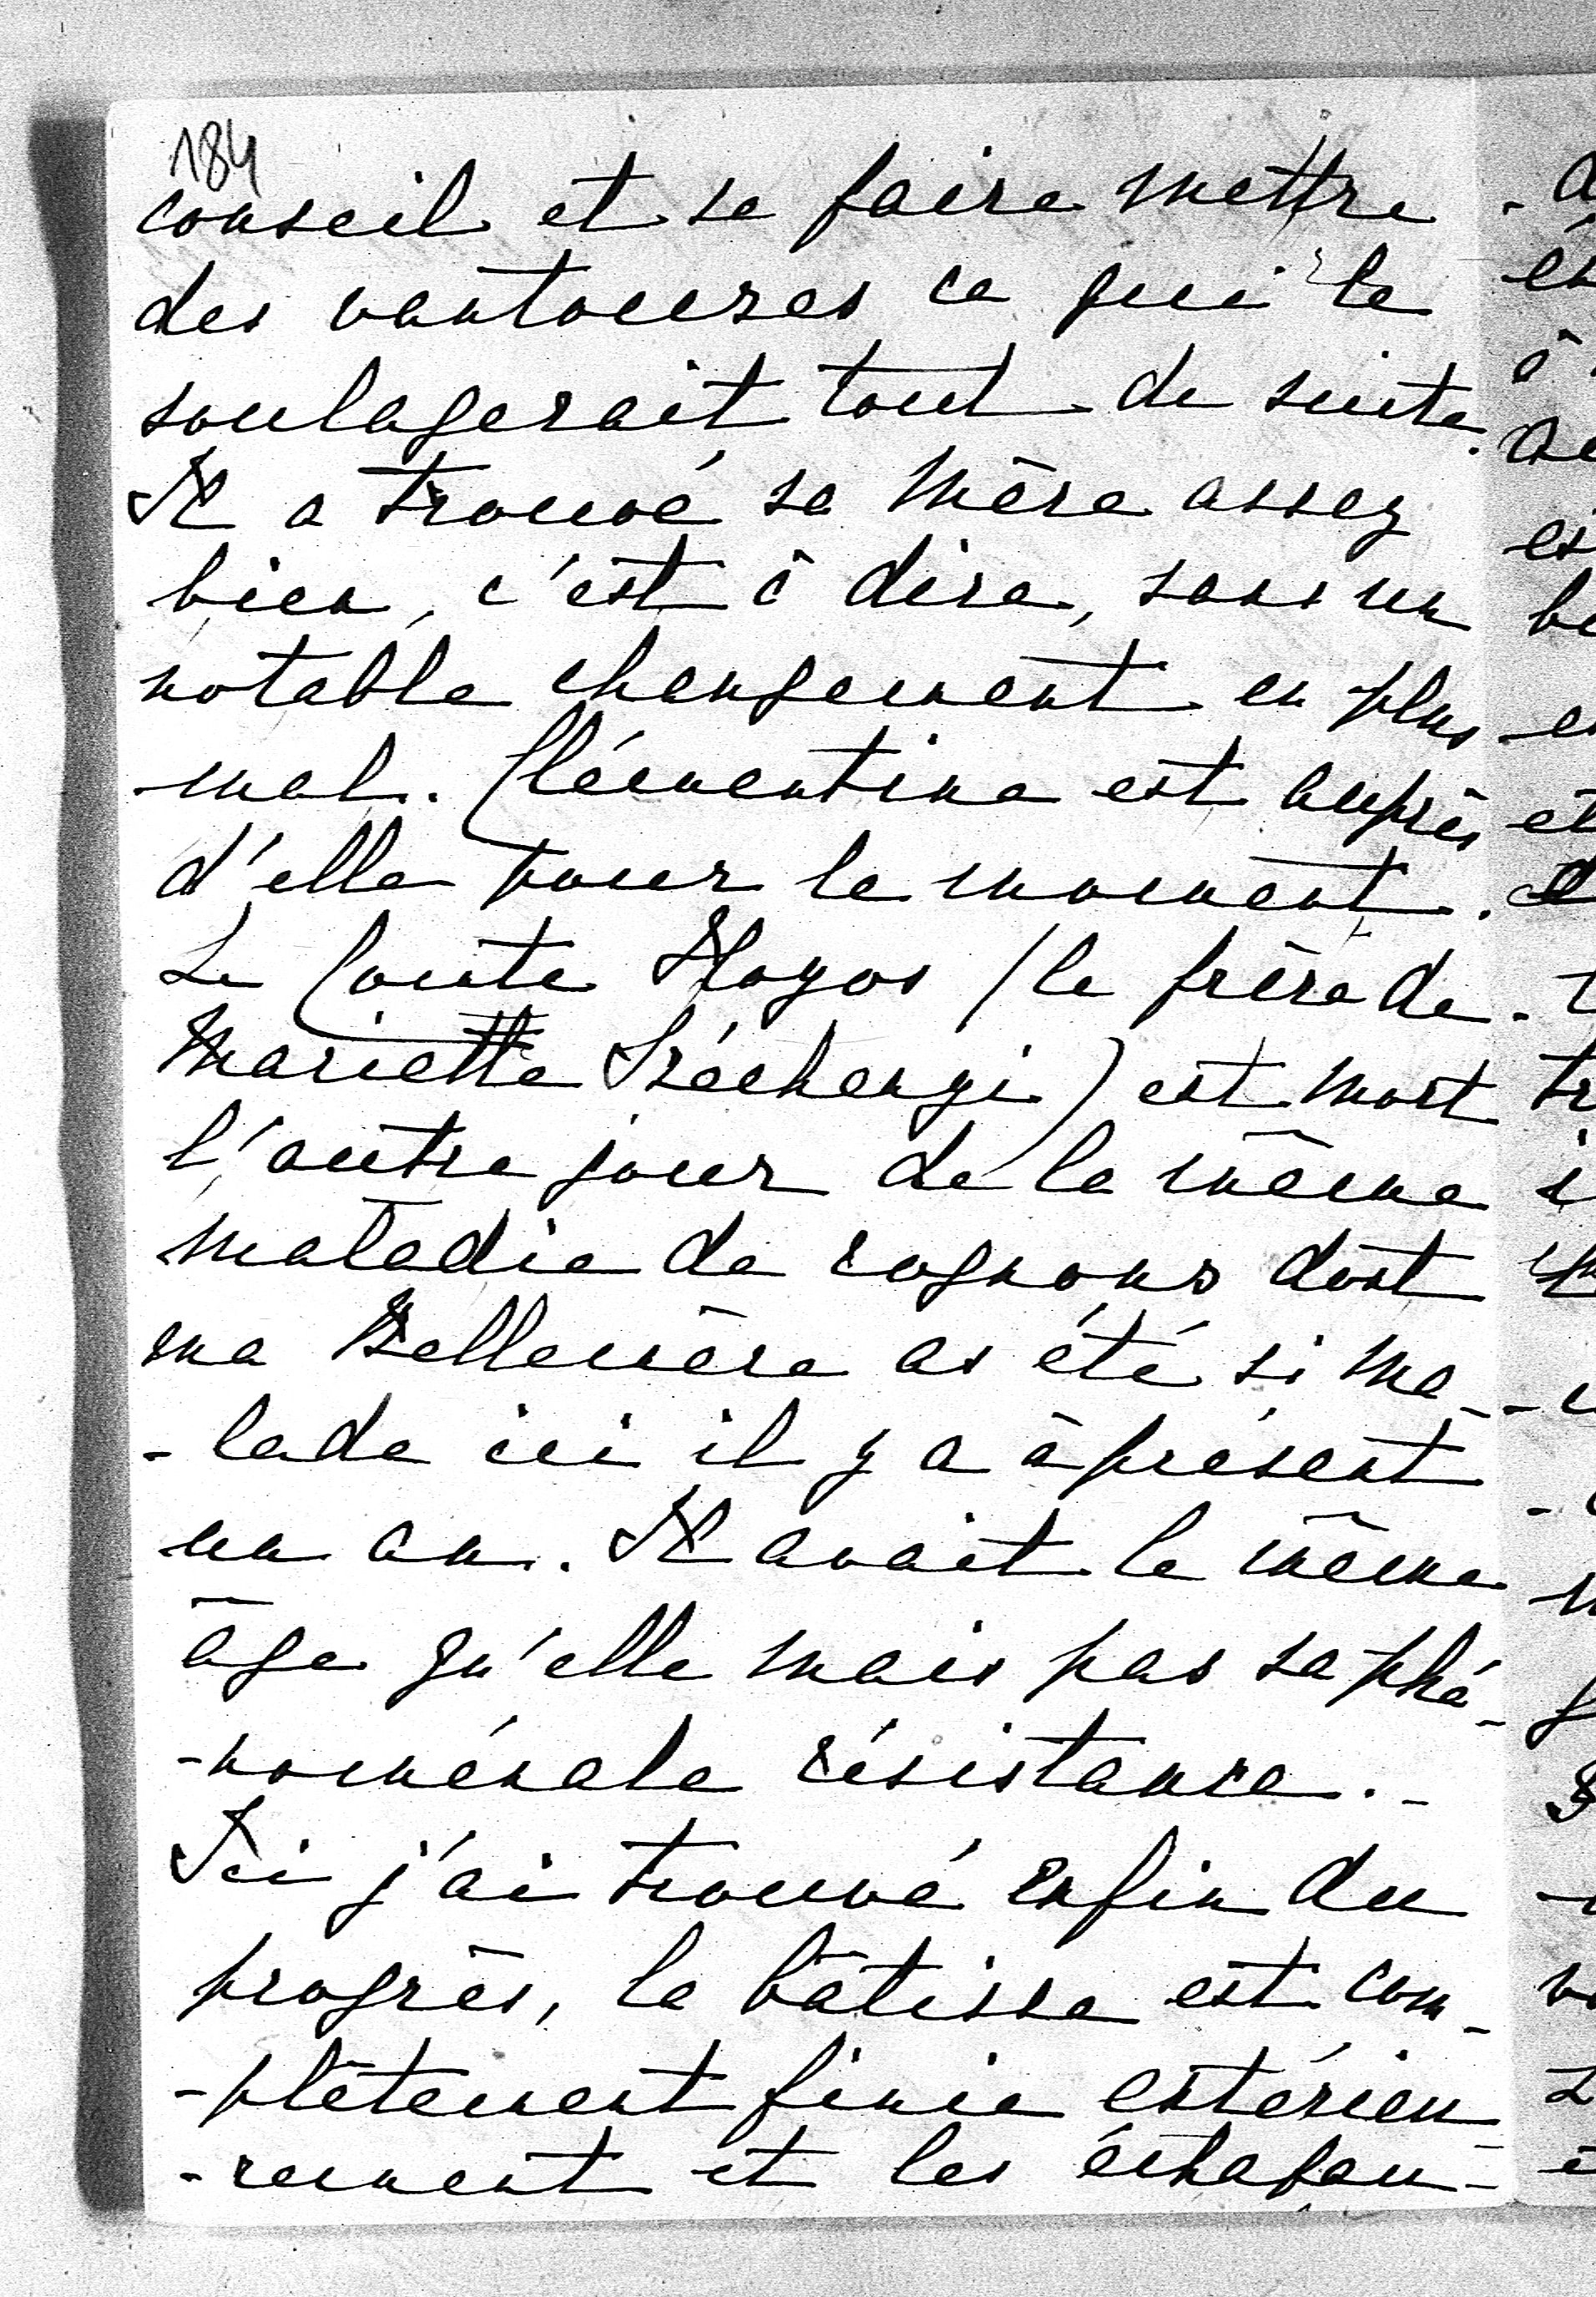 184
conseil et se faire mettre
des vantouses ce qui le
soulagerait tout de suite.
Il a trouvé sa Mère assez
bien, c'est à dire, sans un
notable changement en plus
mal. Clémentine est auprès
d'elle pour le moment.
Le Comte Hoyos (le frère de
Mariette Szécheny) est mort
l'autre jour de la même
maladie de rognons dont
ma Bellemère as été si ma-
-lade ici il y a à présent
un an. Il avait le même
âge qu'elle mais pas sa phé-
-noménale résistance.-
Ici j'ai trouvé enfin du
progrès, la bâtisse est com-
-plètement finie extérieu-
-rement et les échafau-